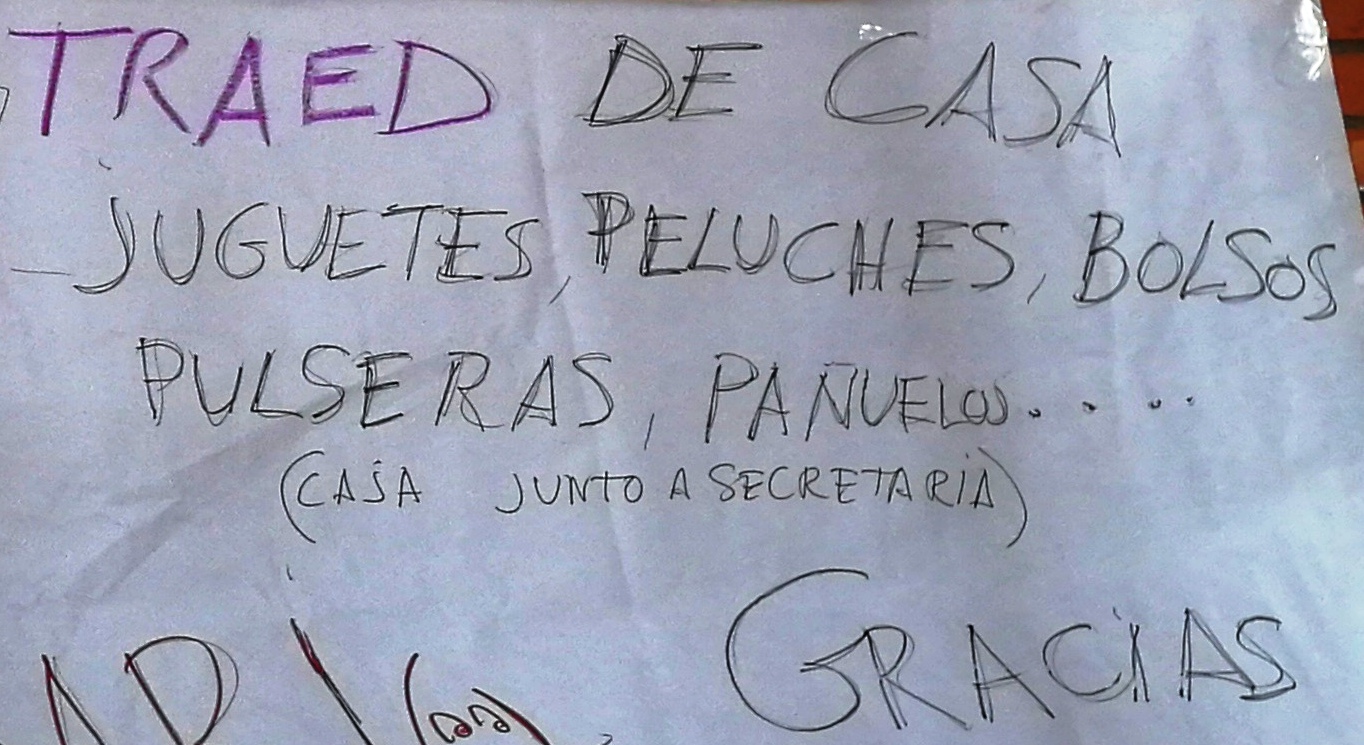 TRAED DE CASA
JUGUETES, PELUCHES, BOLSOS
PULSERAS, PAÑUELOS....
(CAJA JUNTO A SECRETARIA)
GRACIAS